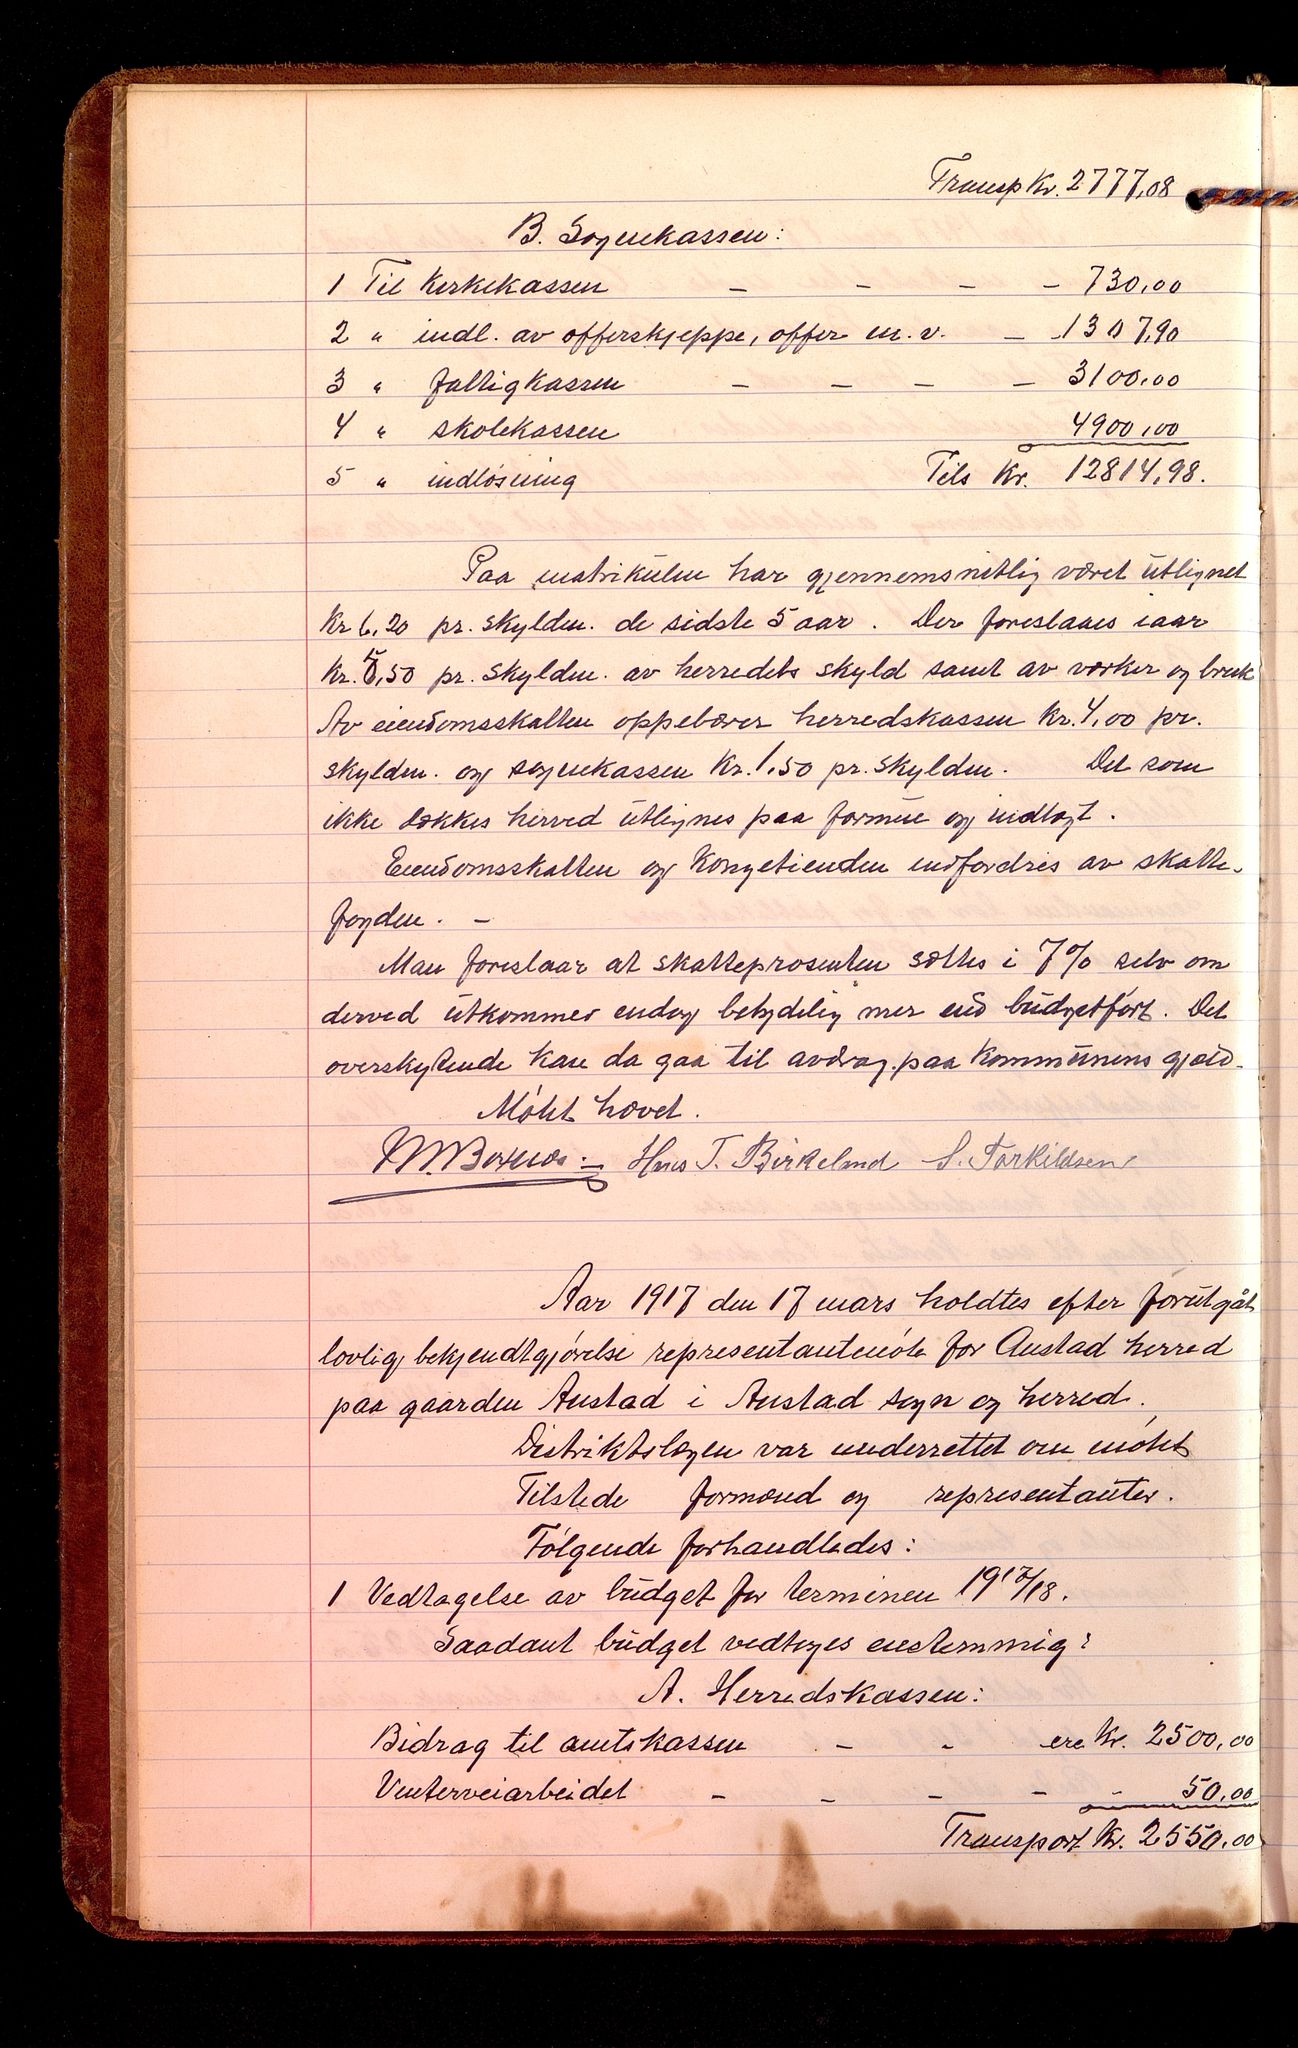 Transp Kr. 2777,08
B. Sognekassen:
1 Til Kirkekassen - - - - 730,00
2 " indl. av offerskjeppe, offer m.v. - 1307,90
3 " fattigkassen - - - - 3100,00
4 " skolekassen 4900,00
5 " indløsning Tils Kr. 12814,98.
Paa matrikulen har gjennemsnitlig været utlignet
Kr 6,20 pr. skyldm. de sidste 5 aar. Der foreslaaes iaar
Kr. 5,50 pr. skyldm. av herredets skyld samt av verker og bruk
Av eiendomsskatten oppebærer herredskassen Kr. 4,00 pr.
skyldm. og sognekassen Kr. 1,50 pr. skyldm. Det som
ikke dækkes herved utlignes paa formue og indtægt.
Eiendomsskatten og Kongetienden indfordres av skatte-
fogden. -
Man foreslaar at skatteprosenten sættes i 7% selv om
derved utkommer endog betydelig mer end budgetført. Det
overskytende kan da gaa til avdrag paa Kommunens gjæld.
Møtet hævet.
Hans T. Birkeland S. Torkildsen
Aar 1917 den 17 mars holdtes efter forutgåt
lovlig bekjendtgjørelse representantmøte for Austad herred
paa gaarden Austad i Austad sogn og herred.
Distriktslægen var underrettet om møtet
Tilstede formænd og representanter.
Følgende forhandledes:
1 Vedtagelse av budget for terminen 1917/18.
Saadant budget vedtoges enstemmig:
A. Herredskassen:
Bidrag til amtskassen - - Kr. 2500,00
Vinterveiarbeidet - - - - - 50,00
Transport Kr. 2550,00